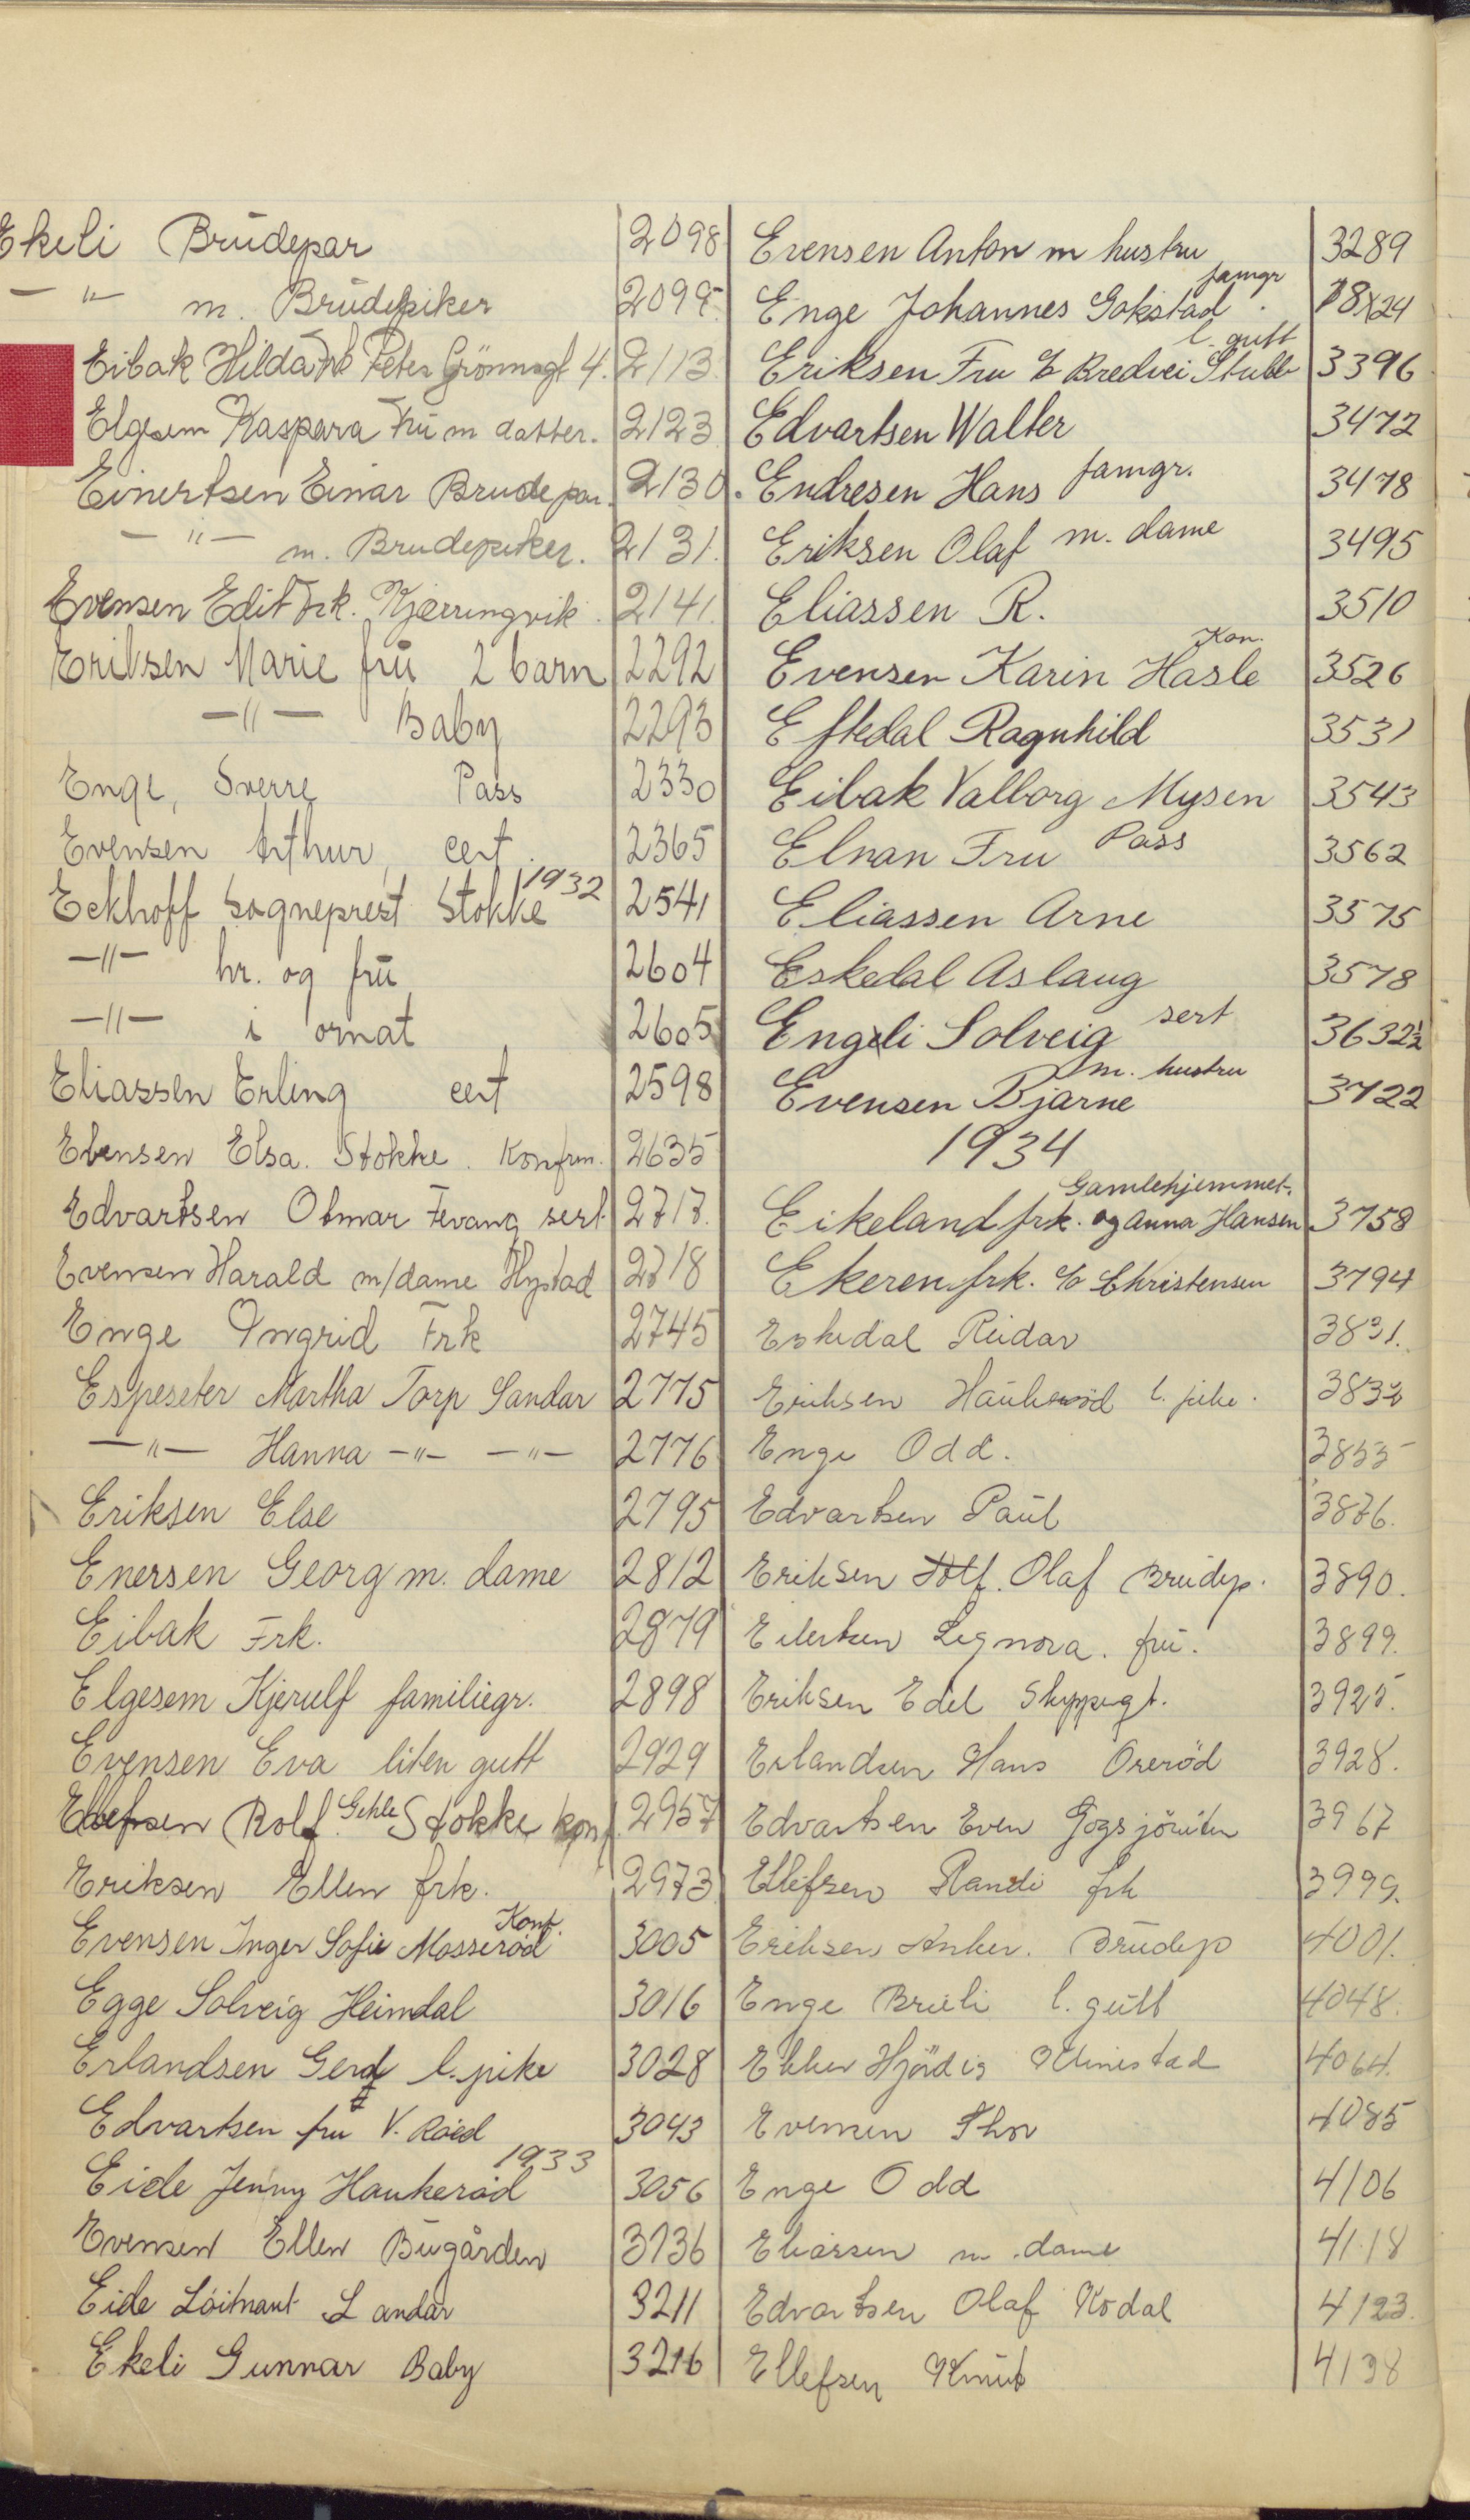 Ekeli Brudepar 2098
— " — m. Brudepiker 2099
Eibak Hilda Frk Peter Grönnsgt 4. 2113
Elgesem Kaspara Fru m datter. 2123
Einertsen Einar Brudepar. 2130
— " — m. Brudepiker. 2131.
Evensen Edit Frk. Kjærringvik. 2141.
Eriksen Marie fru 2 barn 2292
— " — Baby 2293
Enge, Sverre Pass 2330
Evensen Arthur, cert. 2365
1932
Eckhoff Sogneprest Stokke 2541
— " — hr. og fru 2604
— " — i ornat 2605
Eliassen Erling cert 2598
Ebensen Elsa. Stokke. Konfrm. 2635
Edvartsen Otmar Fevang sert. 2717.
Evensen Harald m/dame Hystad 2718
Enge Ingrid Frk 2745
Espeseter Martha Torp Sandar 2775
— " — Hanna — " — — " — 2776
Eriksen Else 2795
Enersen Georg m. dame 2812
Eibak Frk. 2879
Elgesem Kjerulf familiegr. 2898
Evensen Eva liten gutt 2929
Ellefsen Rolf Gehle Stokke konf. 2957
Eriksen Ellen frk. 2973
Konf.
Evensen Inger Sofie Mosserød 3005
Egge Solveig Heimdal 3016
Erlandsen Gerd l. pike 3028
Edvartsen fru V. Råed 3043
1933
Eide Jenny Haukerød 3056
Evensen Ellen Bugården 3136
Eide Löitnant Sandar 3211
Ekeli Gunnar Baby 3216
Evensen Anton m hustru 3289
famgr
Enge Johannes Gokstad. 18x24
l. gutt
Eriksen Fru % Bredvei Stubb 3396
Edvartsen Walter 3472
Endresen Hans famgr. 3478
Eriksen Olaf m. dame 3495
Eliassen R. 3510
Kon.
Evensen Karin Hasle 3526
Eftedal Ragnhild 3531
Eibak Valborg Mysen 3543
Elnan Fru Pass 3562
Eliassen Arne 3575
Eskedal Aslaug 3578
Engeli Solveig sert 3632½
m. hustru
Evensen Bjarne 3722
1934
Gamlehjemmet.
Eikeland frk. og Anna Hansen 3758
Ekeren frk. c/o Christensen 3794
Eskedal Reidar 3831.
Eriksen Haukerød l. pike. 3832
Enge Odd. 3855
Edvartsen Paul 3876.
Eriksen Olaf Brudep. 3890.
Eilertsen Signora. fru. 3899.
Eriksen Edel Skyppergt. 3925.
Erlandsen Hans Orerød 3928.
Edvartsen Even 3967
Ellefsen Randi frk 3999.
Eriksen Anker. Brudep 4001.
Enge Brueli l. gutt 4048.
Hjördis Klinestad 4064.
Evensen Thor 4085
Enge Odd 4106
Eliassen m. dame 4118
Edvartsen Olaf Kodal 4123.
Ellefsen Knut 4138